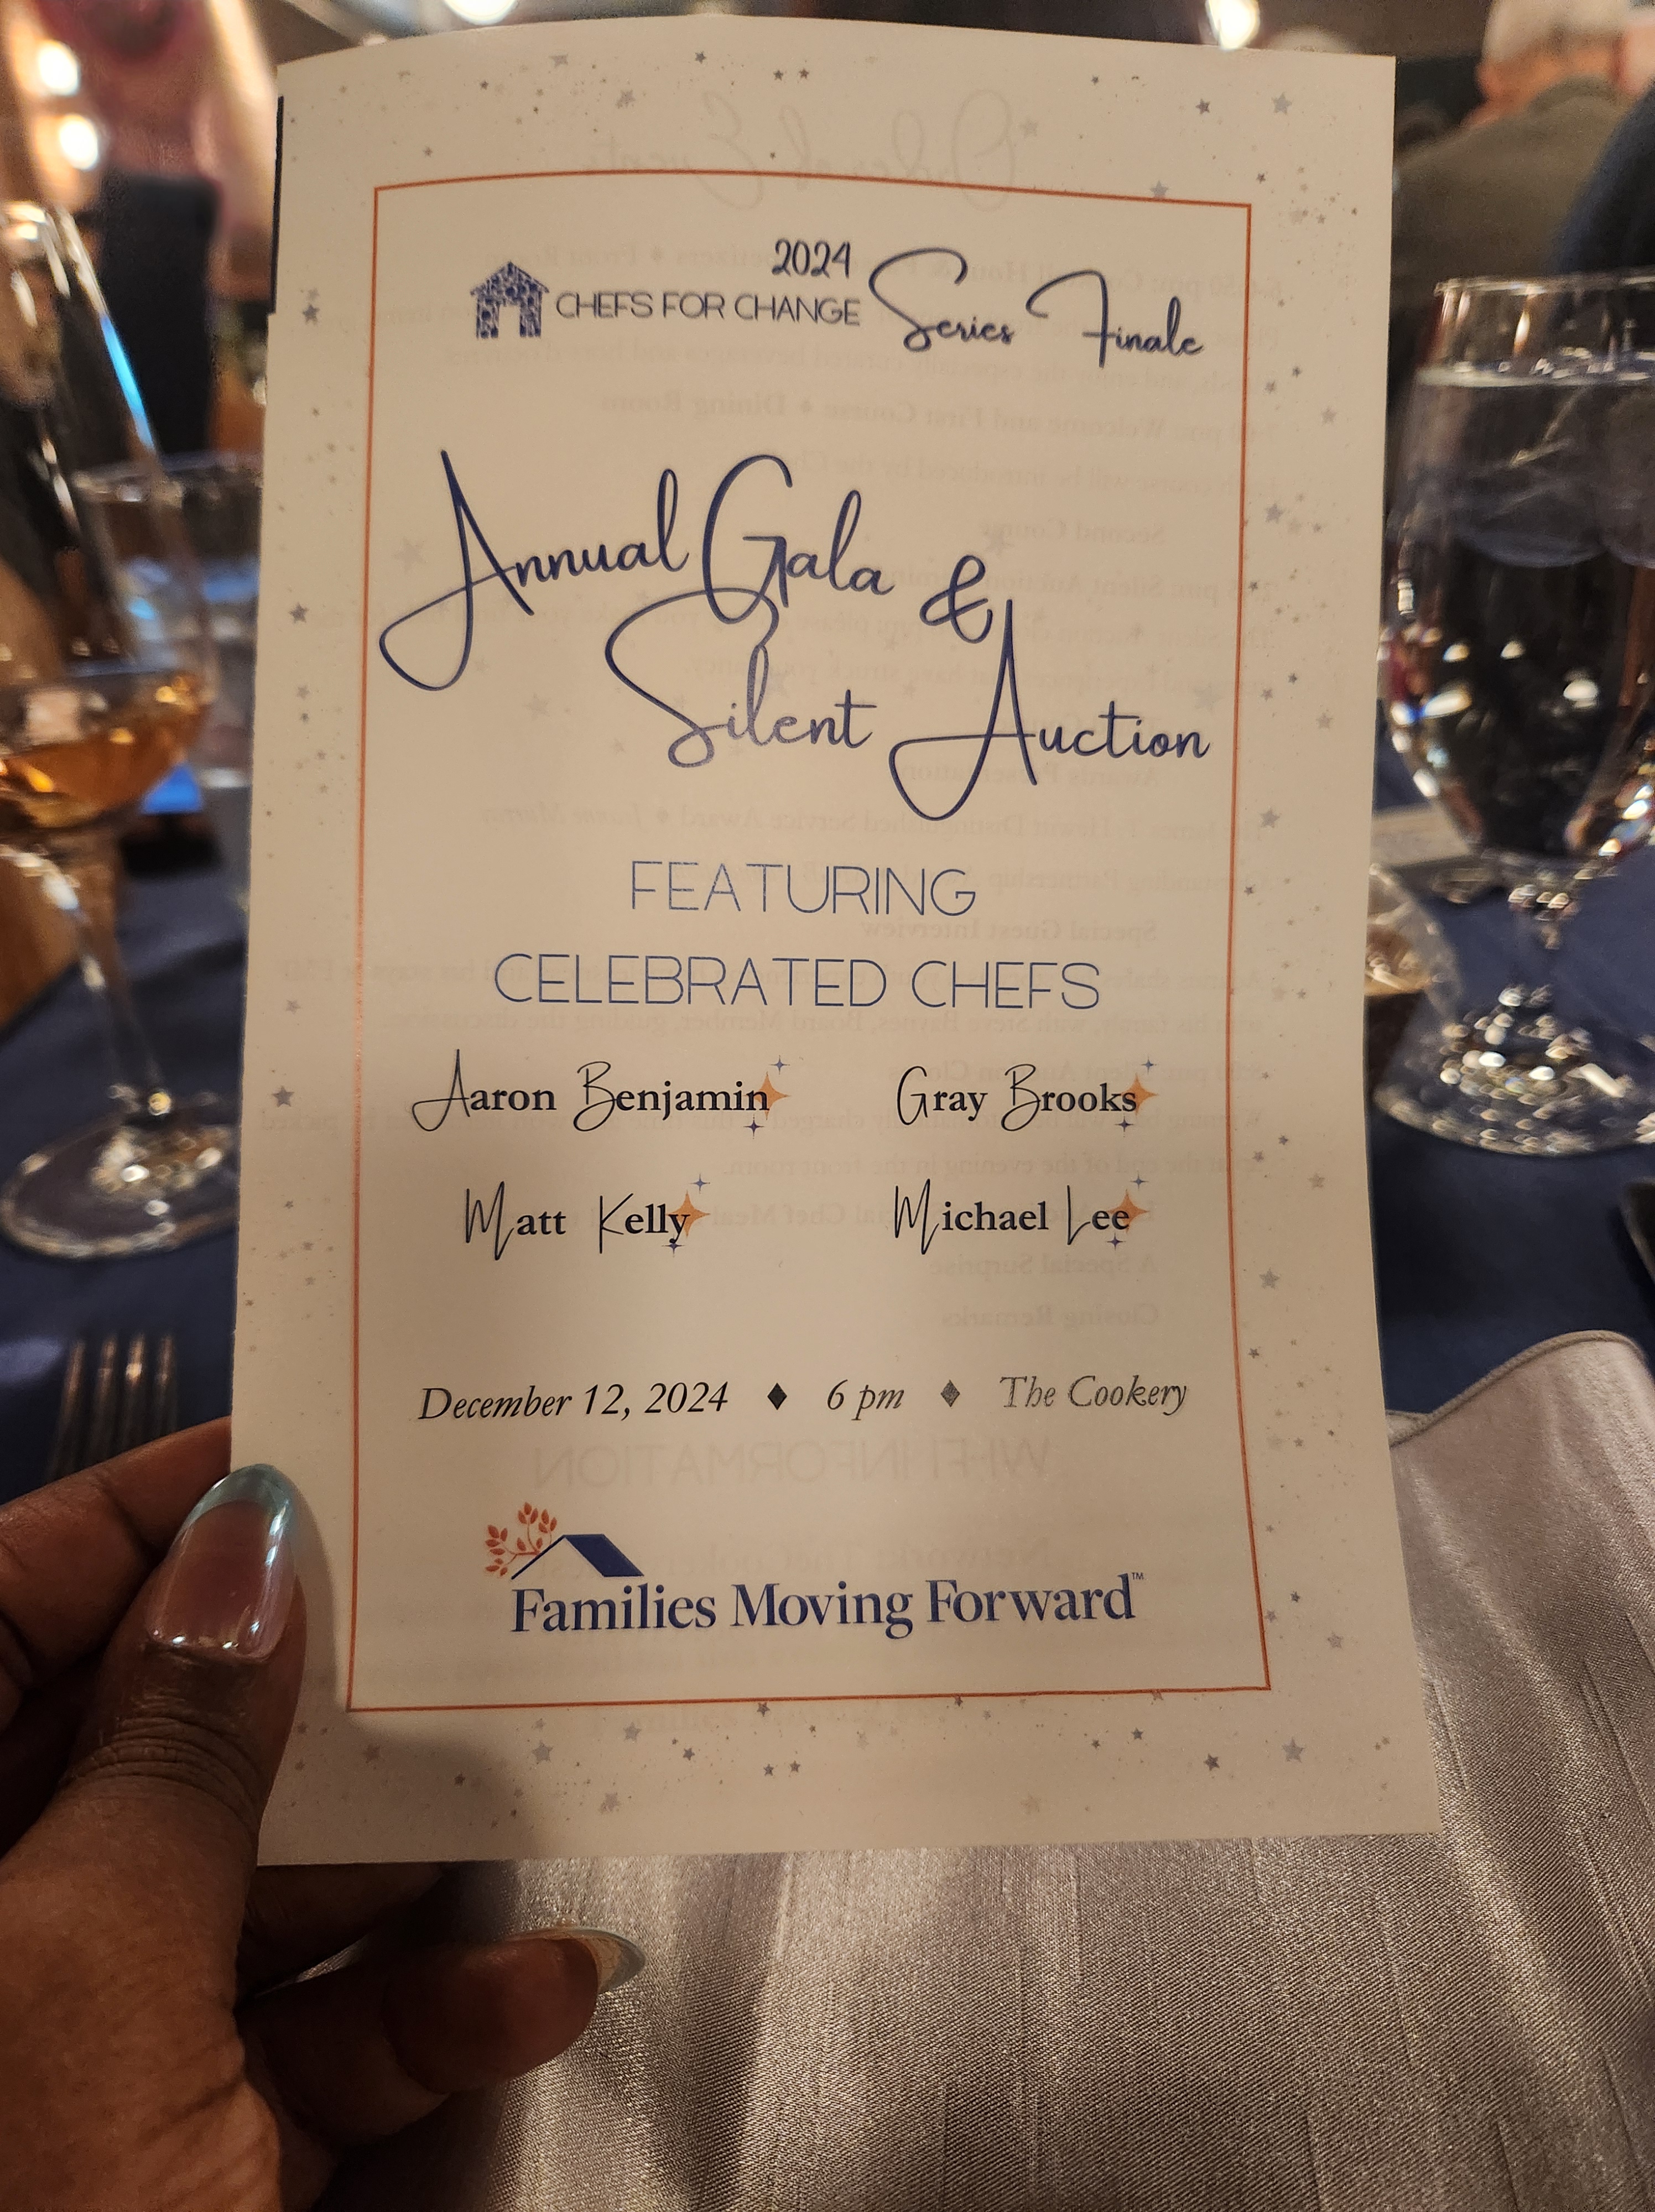 2024
CHEFS FOR CHANGE Series Finale
Annual Gala &
Silent Auction
FEATURING
CELEBRATED CHEFS
Aaron Benjamin Gray Brooks
Matt Kelly Michael Lee
December 12, 2024 ♦ 6 pm ♦ The Cookery
Families Moving Forward™